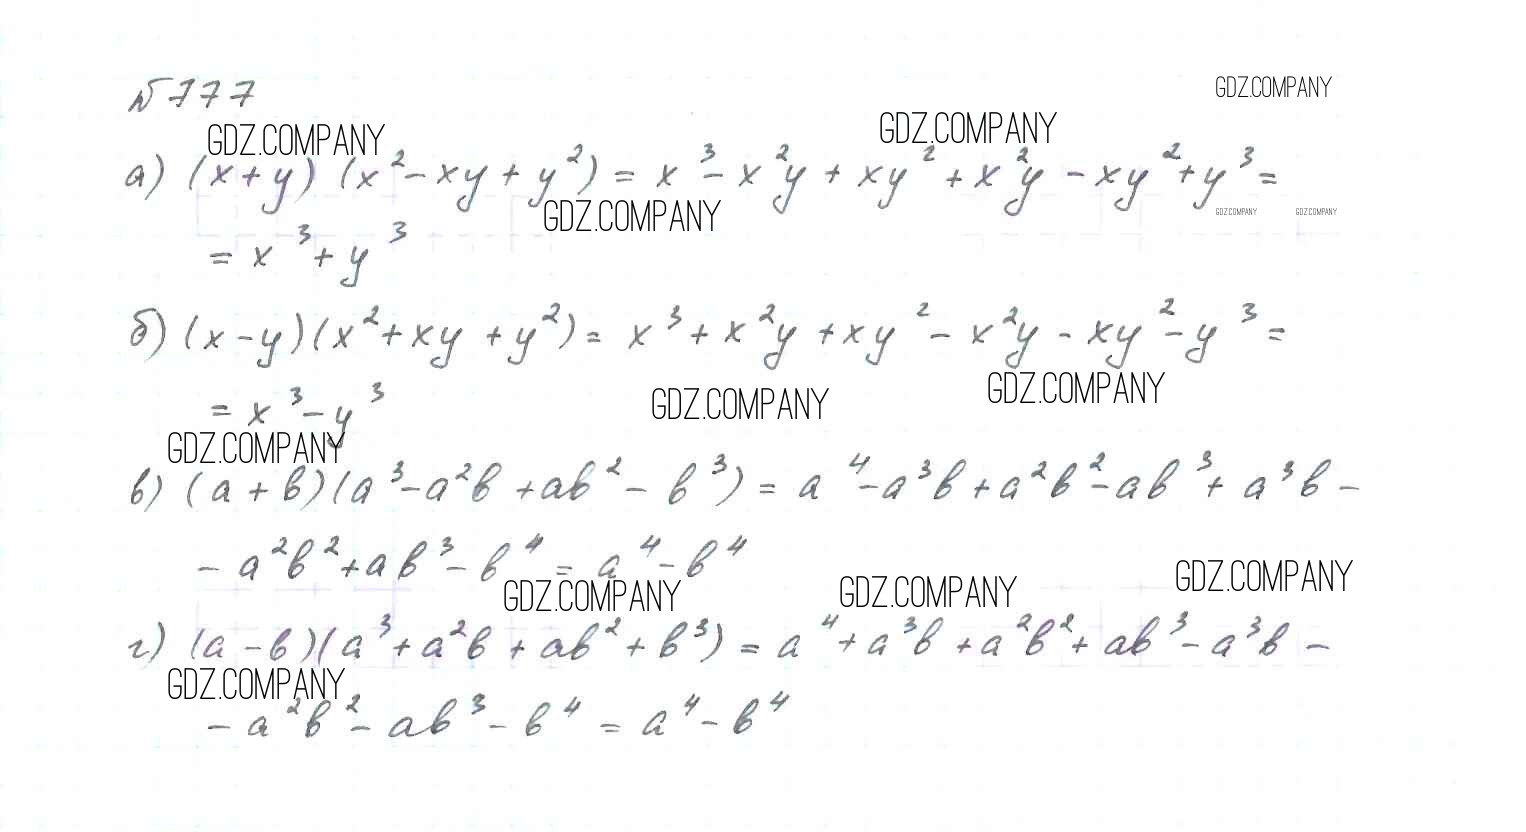 № 777
GDZ.COMPANY
GDZ.COMPANY GDZ.COMPANY
а) (x+y) (x²-xy+y²) = x³-x²y+xy²+x²y-xy²+y³=
GDZ.COMPANY GDZ.COMPANY GDZ.COMPANY
= x³+y³
б) (x-y)(x²+xy+y²)= x³+x²y+xy²-x²y-xy²-y³=
GDZ.COMPANY GDZ.COMPANY
= x³-y³
GDZ.COMPANY
в) (a+b)(a³-a²b+ab²-b³) = a⁴-a³b+a²b²-ab³+a³b-
-a²b²+ab³-b⁴ = a⁴-b⁴
GDZ.COMPANY GDZ.COMPANY GDZ.COMPANY
г) (a-b)(a³+a²b+ab²+b³) = a⁴+a³b+a²b²+ab³-a³b-
GDZ.COMPANY
-a²b²-ab³-b⁴ = a⁴-b⁴